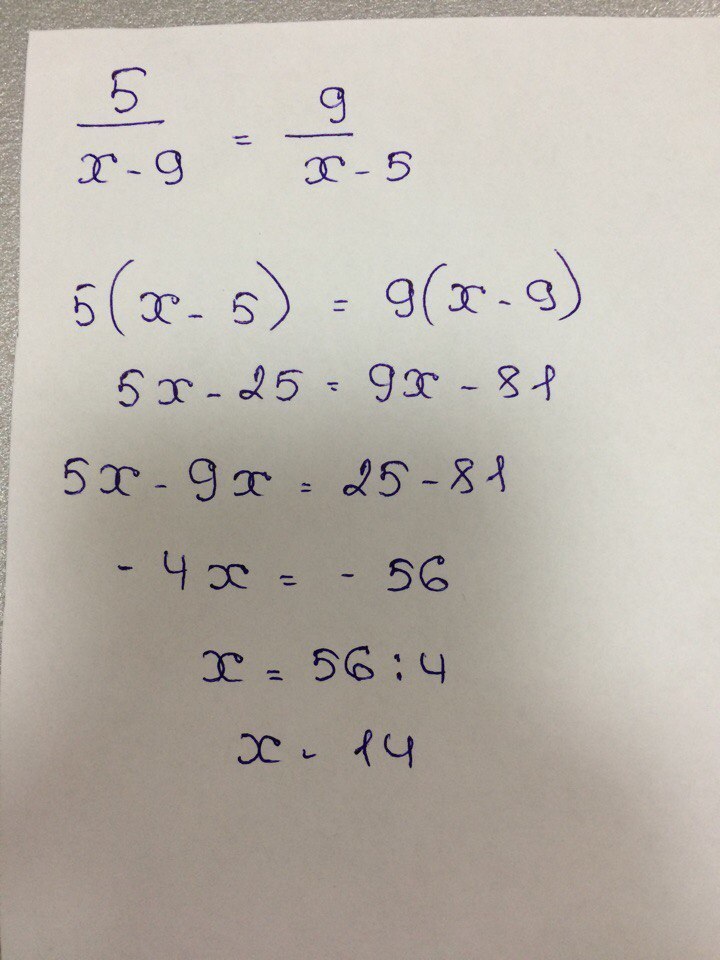 5/(x-9) = 9/(x-5)
5(x-5) = 9(x-9)
5x-25 = 9x-81
5x-9x = 25-81
-4x = -56
x = 56:4
x - 14